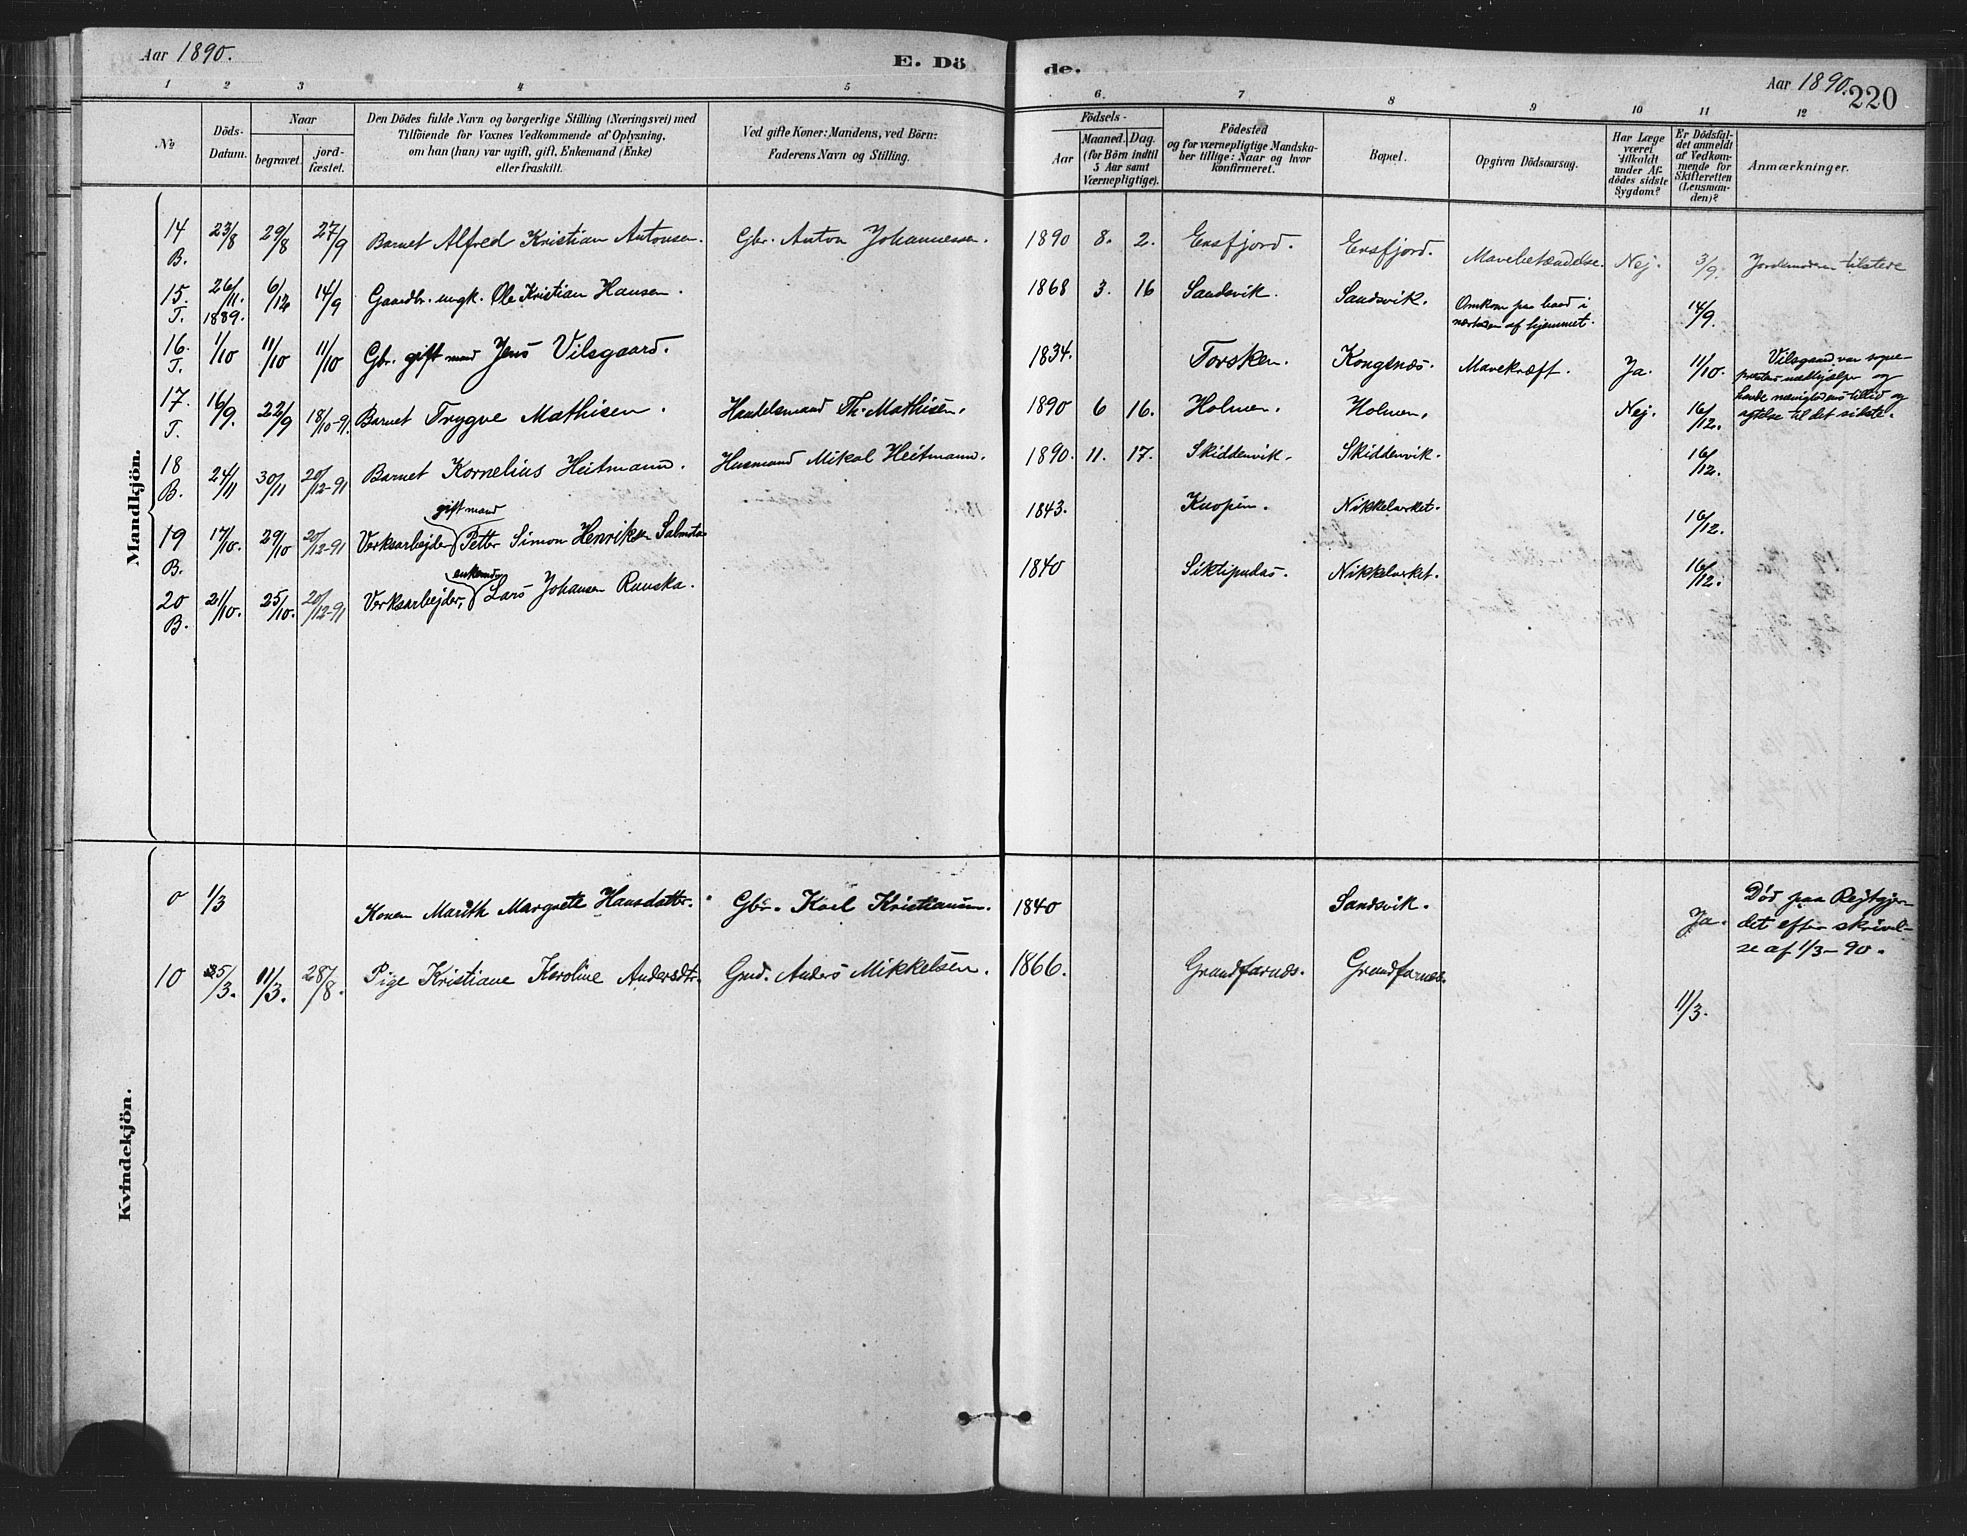 Aar 1890.
E. Dö
de.
Aar 1890.
220
1 2 3 4 5 6. 7 8 9 10 11 12
No
Döds-Datum.
Naar
begravet.
jord-fæstet.
Den Dödes fulde Navn og borgerlige Stilling (Næringsvei) med
Tilföiende for Voxnes Vedkommende af Oplysning,
om han (hun) var ugift, gift, Enkemand (Enke)
eller fraskilt.
Ved gifte Koner: Mandens, ved Börn:
Faderens Navn og Stilling.
Födsels-
Aar
Maaned. Dag.
(for Börn indtil
5 Aar samt
Værnepligtige).
Födested
og for værnepligtige Mandska-
ber tillige: Naar og hvor
konfirmeret.
Bopæl.
Opgiven Dödsaarsag.
Har Læge
været
tilkaldt
under Af-
dödes sidste
Sygdom?
Er Dödsfal-
det anmeldt
af Vedkom-
mende for
Skifteretten
(Lensman-
den)?
Anmærkninger.
Mandkjön.
14 B. 23/8 29/8 27/9 Barnet Alfred Kristian Antonsen. Gbr. Anton Johannessen. 1890 8. 2. Ersfjord. Ersfjord. Mavebetændelse. Nej. 3/9. Jordmoderen tilstede
15. T. 26/11. 1889. 6/12 14/9 Gaardbr. ungk. Ole Kristian Hansen. 1868 3. 16 Sandsvik. Sandsvik. Omkom paa baad i
nærheden af hjemmet. 14/9.
16. T. 1/10 11/10 11/10 Gbr. gift mand Jens Vilsgaard. 1834. Torsken. Kongsnæs. Mavekræft. Ja. 11/10. Vilsgaard var sogne-
præstens medhjælper og
havde menighedens tillid og
agtelse til det sidste.
17. T. 16/9. 22/9 18/10-91. Barnet Trygve Mathisen. Handelsmand Th. Mathisen. 1890 6 16. Holmen. Holmen. Nej. 16/12.
18 B. 24/11 30/11 20/12-91 Barnet Kornelius Heitmann. Husmand Mikal Heitmann. 1890. 11. 17. Skiddenvik. Skiddenvik. 16/12.
gift mand
19 B. 17/10. 29/10 20/12-91 Verksarbejder Petter Simon Henriksen 1843. Kuopio. Nikkelverket. 16/12.
enkemd
20 B. 21/10. 25/10. 20/12-91 Verksarbejder, Lars Johansen Ranska. 1840 Nikkelverket. 16/12.
Kvindekjön.
0 1/3 Konen Marith Margrete Hansdatter. Gbr. Karl Kristiansen. 1840 Sandsvik. Ja. Död paa Rejtgjer-
det efter skrivel-
se af 1/3-90.
10 5/3. 11/3. 28/8. Pige Kristiane Karoline Andersdtr. Gmd. Anders Mikkelsen. 1866. Grundfarnæs. Grundfarnæs. 11/3.